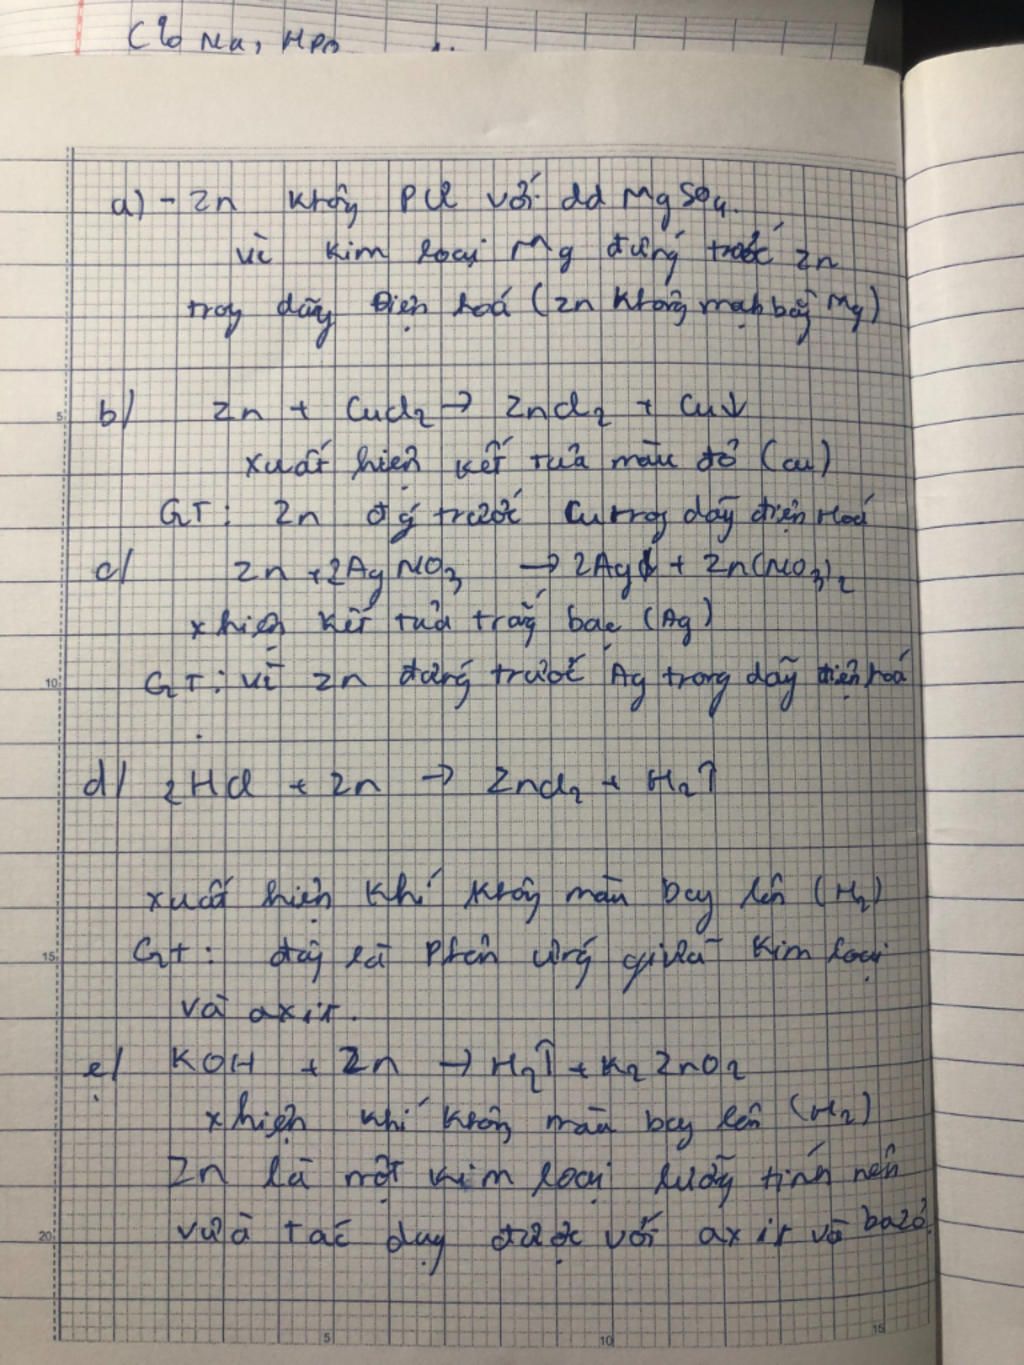 a) - Zn không PỨ với dd MgSO4.
vì kim loại Mg đứng trước Zn
trong dãy điện hoá (Zn không mạnh bằng Mg)
5
b) Zn + CuCl2 → ZnCl2 + Cu↓
xuất hiện kết tủa màu đỏ (Cu)
GT: Zn đg trước Cu trong dãy điện hoá
c) Zn + 2AgNO3 → 2Ag↓ + Zn(NO3)2
x hiện kết tủa trắng bạc (Ag)
10
GT: vì Zn đứng trước Ag trong dãy điện hoá
d) 2HCl + Zn → ZnCl2 + H2↑
xuất hiện khí không màu bay lên (H2)
15
GT: đây là phản ứng giữa kim loại
và axit.
e) KOH + Zn → H2↑ + K2ZnO2
x hiện khí không màu bay lên (H2)
Zn là một kim loại lưỡng tính nên
20
vừa tác dụng được với axit và bazơ.
5 10 15